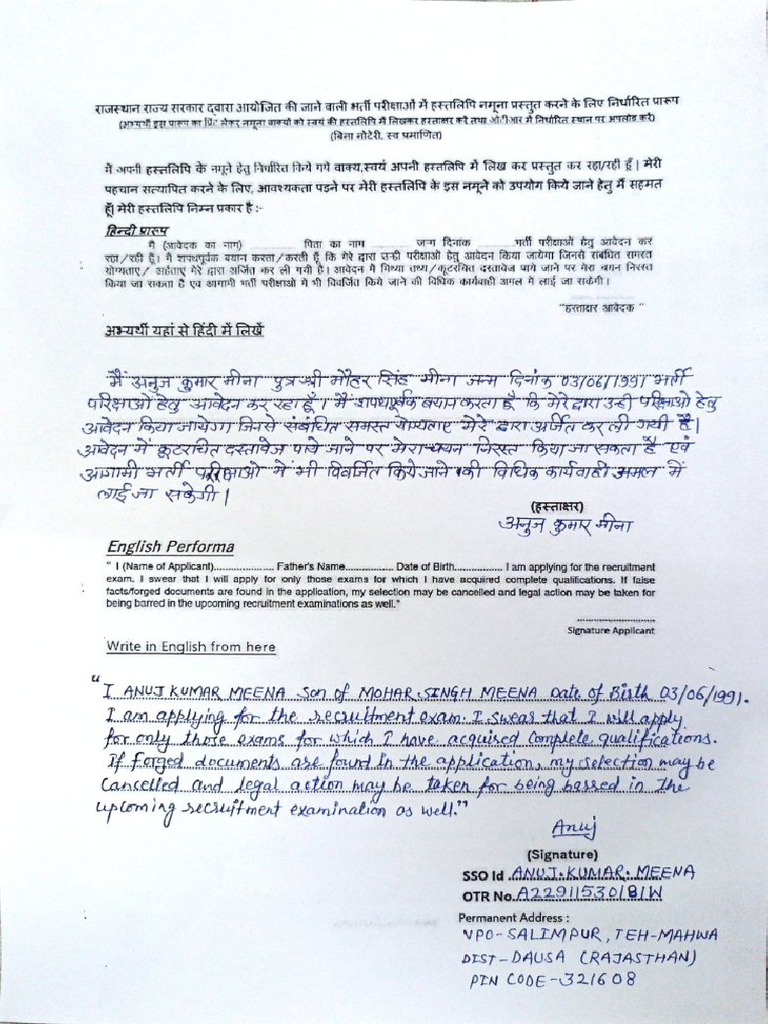 राजस्थान राज्य सरकार द्वारा आयोजित की जाने वाली भर्ती परीक्षाओं में हस्तलिपि नमूना प्रस्तुत करने के लिए निर्धारित प्रारूप
(अभ्यर्थी इस प्रारूप का प्रिंट लेकर नमूना वाक्यों को स्वयं की हस्तलिपि में लिखकर हस्ताक्षर करें तथा ओटीआर में निर्धारित स्थान पर अपलोड करें)
(बिना नौटेरी, स्व प्रमाणित)
मैं अपनी हस्तलिपि के नमूने हेतु निर्धारित किये गये वाक्य,स्वयं अपनी हस्तलिपि में लिख कर प्रस्तुत कर रहा/रही हूँ | मेरी
पहचान सत्यापित करने के लिए, आवश्यकता पड़ने पर मेरी हस्तलिपि के इस नमूने को उपयोग किये जाने हेतु मैं सहमत
हूँ| मेरी हस्तलिपि निम्न प्रकार है :-
हिन्दी प्रारूप
मै (आवेदक का नाम) .............. पिता का नाम .............. जन्म दिनांक ..............भर्ती परीक्षाओं हेतु आवेदन कर
रहा/रही हूँ। मै शपथपूर्वक बयान करता/करती हूँ कि मेरे द्वारा उन्ही परीक्षाओ हेतु आवेदन किया जायेगा जिनसे संबंधित समस्त
योग्यताए/ अर्हताए मेरे द्वारा अर्जित कर ली गयी है। आवेदन में मिथ्या तथ्य/कूटरचित दस्तावेज पाये जाने पर मेरा चयन निरस्त
किया जा सकता है एवं आगामी भर्ती परीक्षाओ मे भी विवर्जित किये जाने की विधिक कार्यवाही अमल में लाई जा सकेगी।
"हस्ताक्षर आवेदक "
अभ्यर्थी यहां से हिंदी में लिखें
मैं अनुज कुमार मीना पुत्र श्री मौहर सिंह मीना जन्म दिनांक 03/06/1991 भर्ती
परिक्षाओ हेतु आवेदन कर रहा हूँ। मैं शपथपूर्वक बयान करता हूँ कि मेरे द्वारा उन्ही परिक्षाओ हेतु
आवेदन किया जायेगा जिनसे संबंधित समस्त योग्यताए मेरे द्वारा अर्जित कर ली गयी है।
आवेदन में कूटरचित दस्तावेज पाये जाने पर मेरा चयन निरस्त किया जा सकता है एवं
आगामी भर्ती परीक्षाओ में भी विवर्जित किये जाने की विधिक कार्यवाही अमल में
लाई जा सकेगी।
(हस्ताक्षर)
अनुज कुमार मीना
English Performa
" I (Name of Applicant)..................... Father's Name................. Date of Birth................ I am applying for the recruitment
exam. I swear that I will apply for only those exams for which I have acquired complete qualifications. If false
facts/forged documents are found in the application, my selection may be cancelled and legal action may be taken for
being barred in the upcoming recruitment examinations as well."
Signature Applicant
Write in English from here
"I ANUJ KUMAR MEENA Son of MOHAR SINGH MEENA Date of Birth 03/06/1991.
I am applying for the recruitment exam. I swear that I will apply
for only those exams for which I have acquired complete qualifications.
If Forged documents are found in the application, my selection may be
Cancelled and legal action may be taken for being barred in the
upcoming recruitment examination as well."
Anuj
(Signature)
SSO Id ANUJ.KUMAR.MEENA
OTR No. A22911530181W
Permanent Address :
VPO-SALIMPUR, TEH-MAHWA
DIST-DAUSA (RAJASTHAN)
PIN CODE-321608